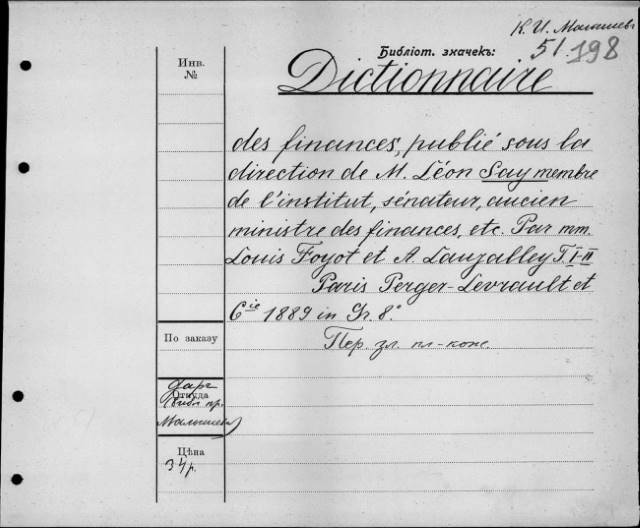 К. И. Малышев
Библіот. значекъ:
51/198
Инв.
№
Dictionnaire
des finances, publié sous la
direction de M. Léon Say membre
de l'institut, sénateur, ancien
ministre des finances, etc. Par mm.
Louis Foyot et A. Lanjalley T. I-II
Paris Perger-Levrault et
Cie 1889 in Gr. 8°
По заказу
Пер. зл. пл-кож.
Даръ
Откуда
пр.
Малышева
Цѣна
34 р.